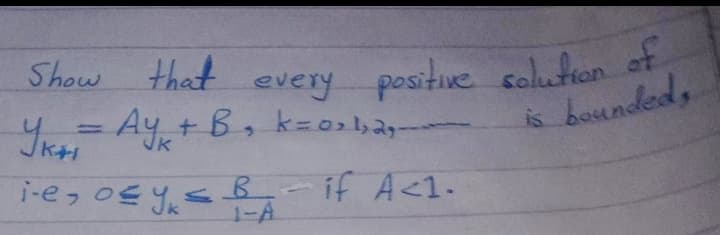 Show that every positive solution of
y_{k+1} = Ay_k + B, k=0,1,2,--- is bounded,
i-e, 0 ≤ y_k ≤ B/(1-A) - if A<1.